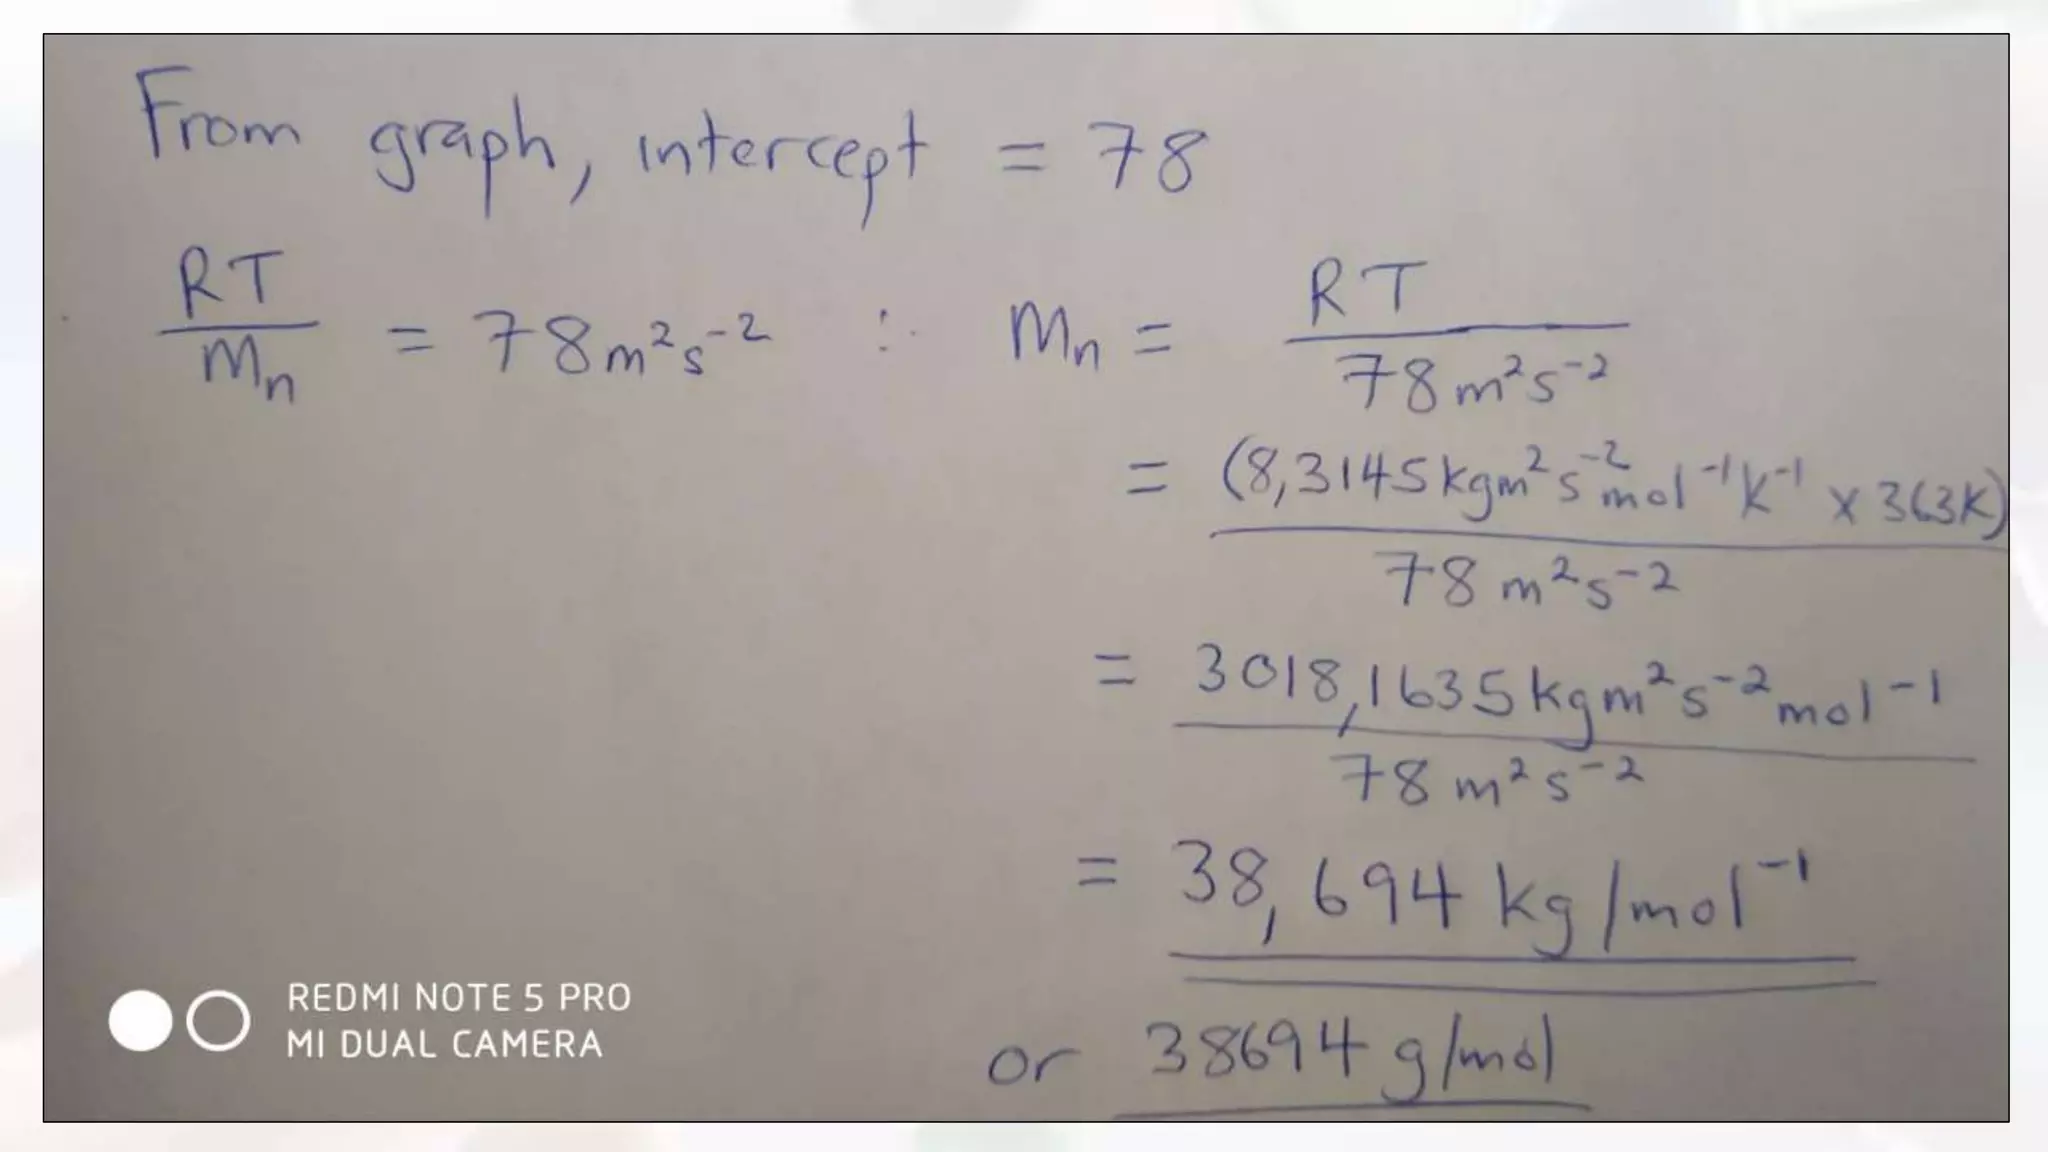 From graph, intercept = 78
RT/Mn = 78m²s⁻² ∴ Mn = RT/78m²s⁻²
= (8,3145kgm²s⁻²mol⁻¹K⁻¹ x 363K)/78m²s⁻²
= 3018,1635kgm²s⁻²mol⁻¹/78m²s⁻²
= 38,694 kg/mol⁻¹
or 38694 g/mol
REDMI NOTE 5 PRO
MI DUAL CAMERA